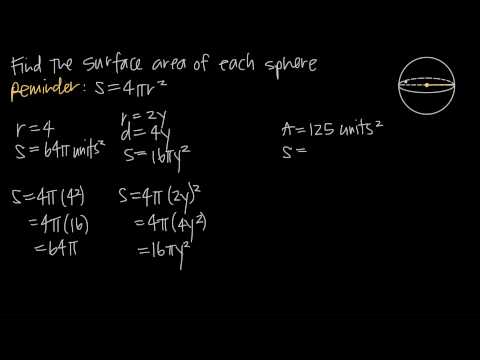 Find the surface area of each sphere
Reminder: S=4πr²
r=4
S=64π units²
r=2y
d=4y
S=16πy²
A=125 units²
S=
S=4π(4²)
=4π(16)
=64π
S=4π(2y)²
=4π(4y²)
=16πy²